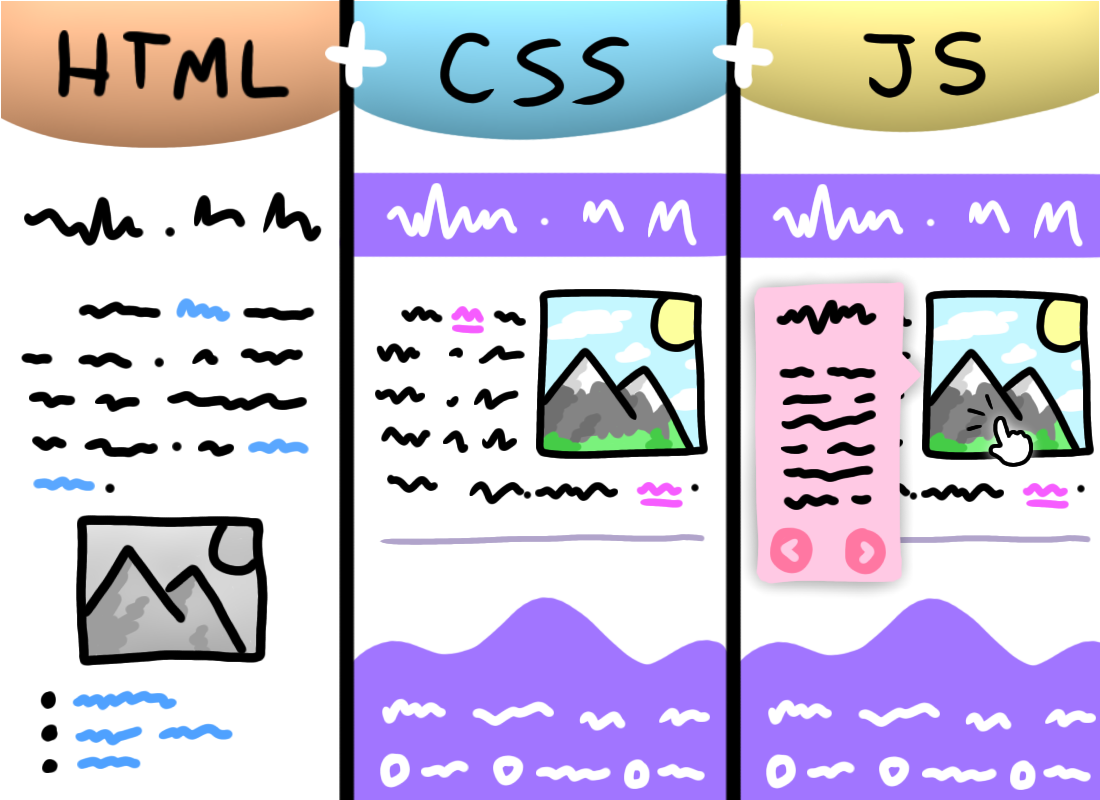 HTML + CSS + JS